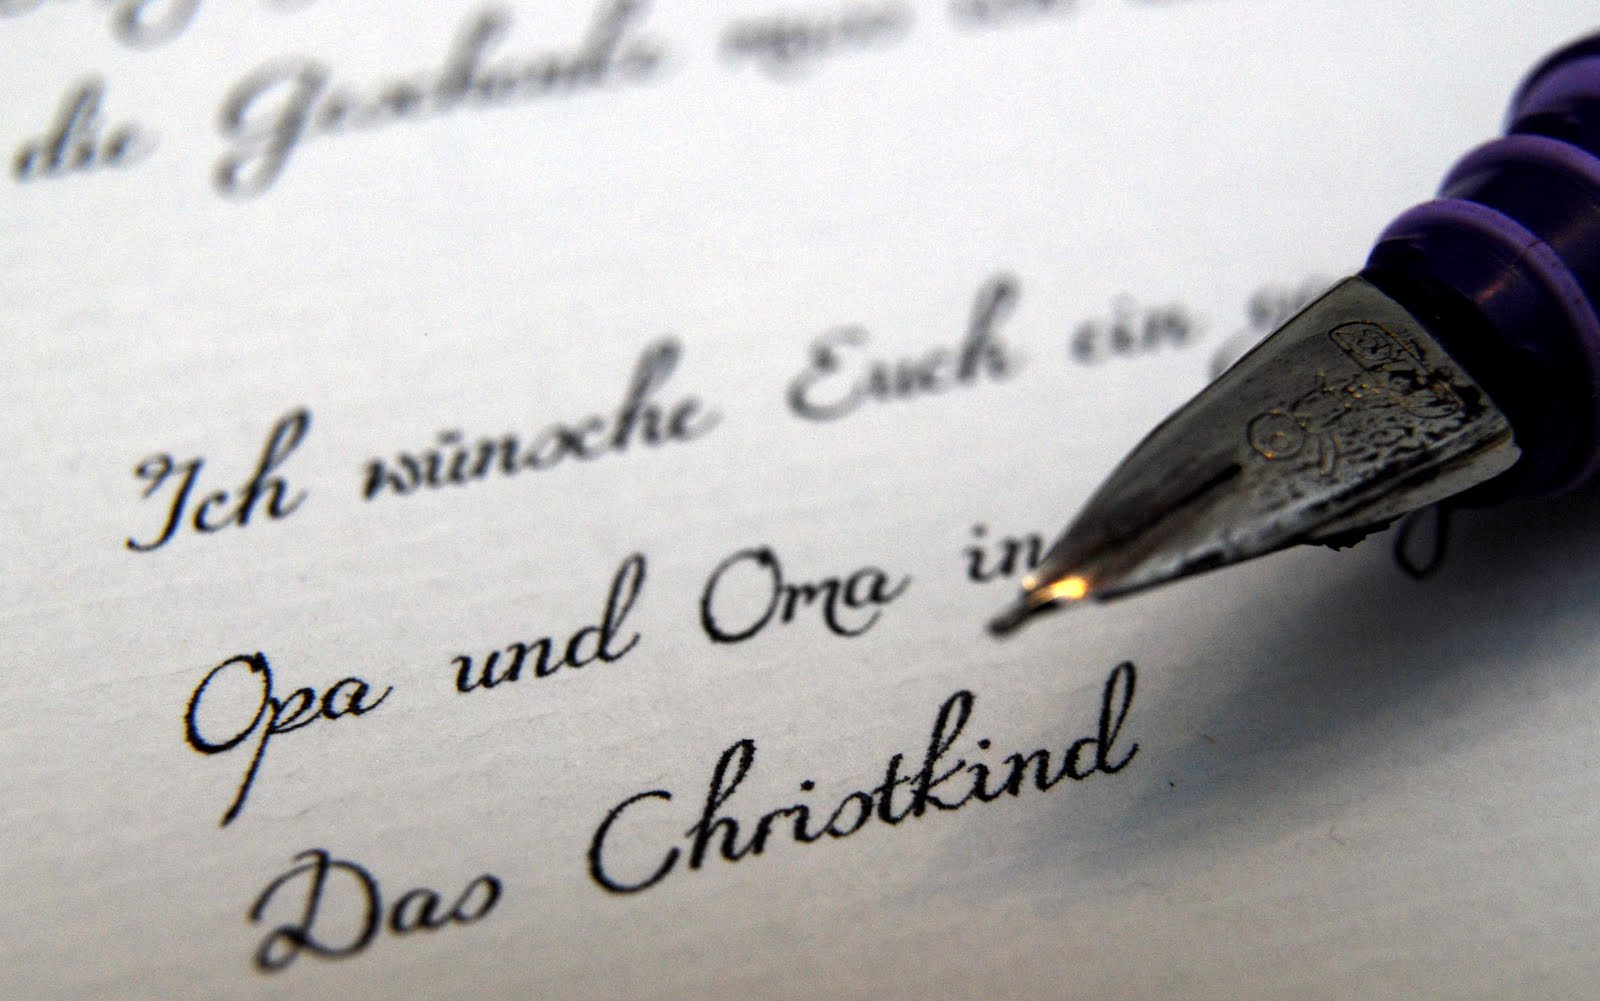 die Geschenke
Ich wünsche Euch ein
Opa und Oma in
Das Christkind